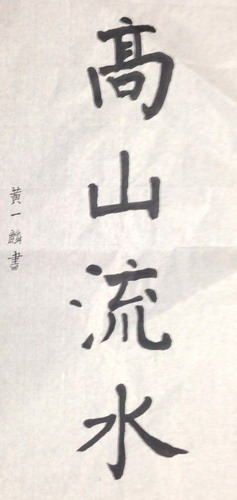 髙山流水
黃一麟書